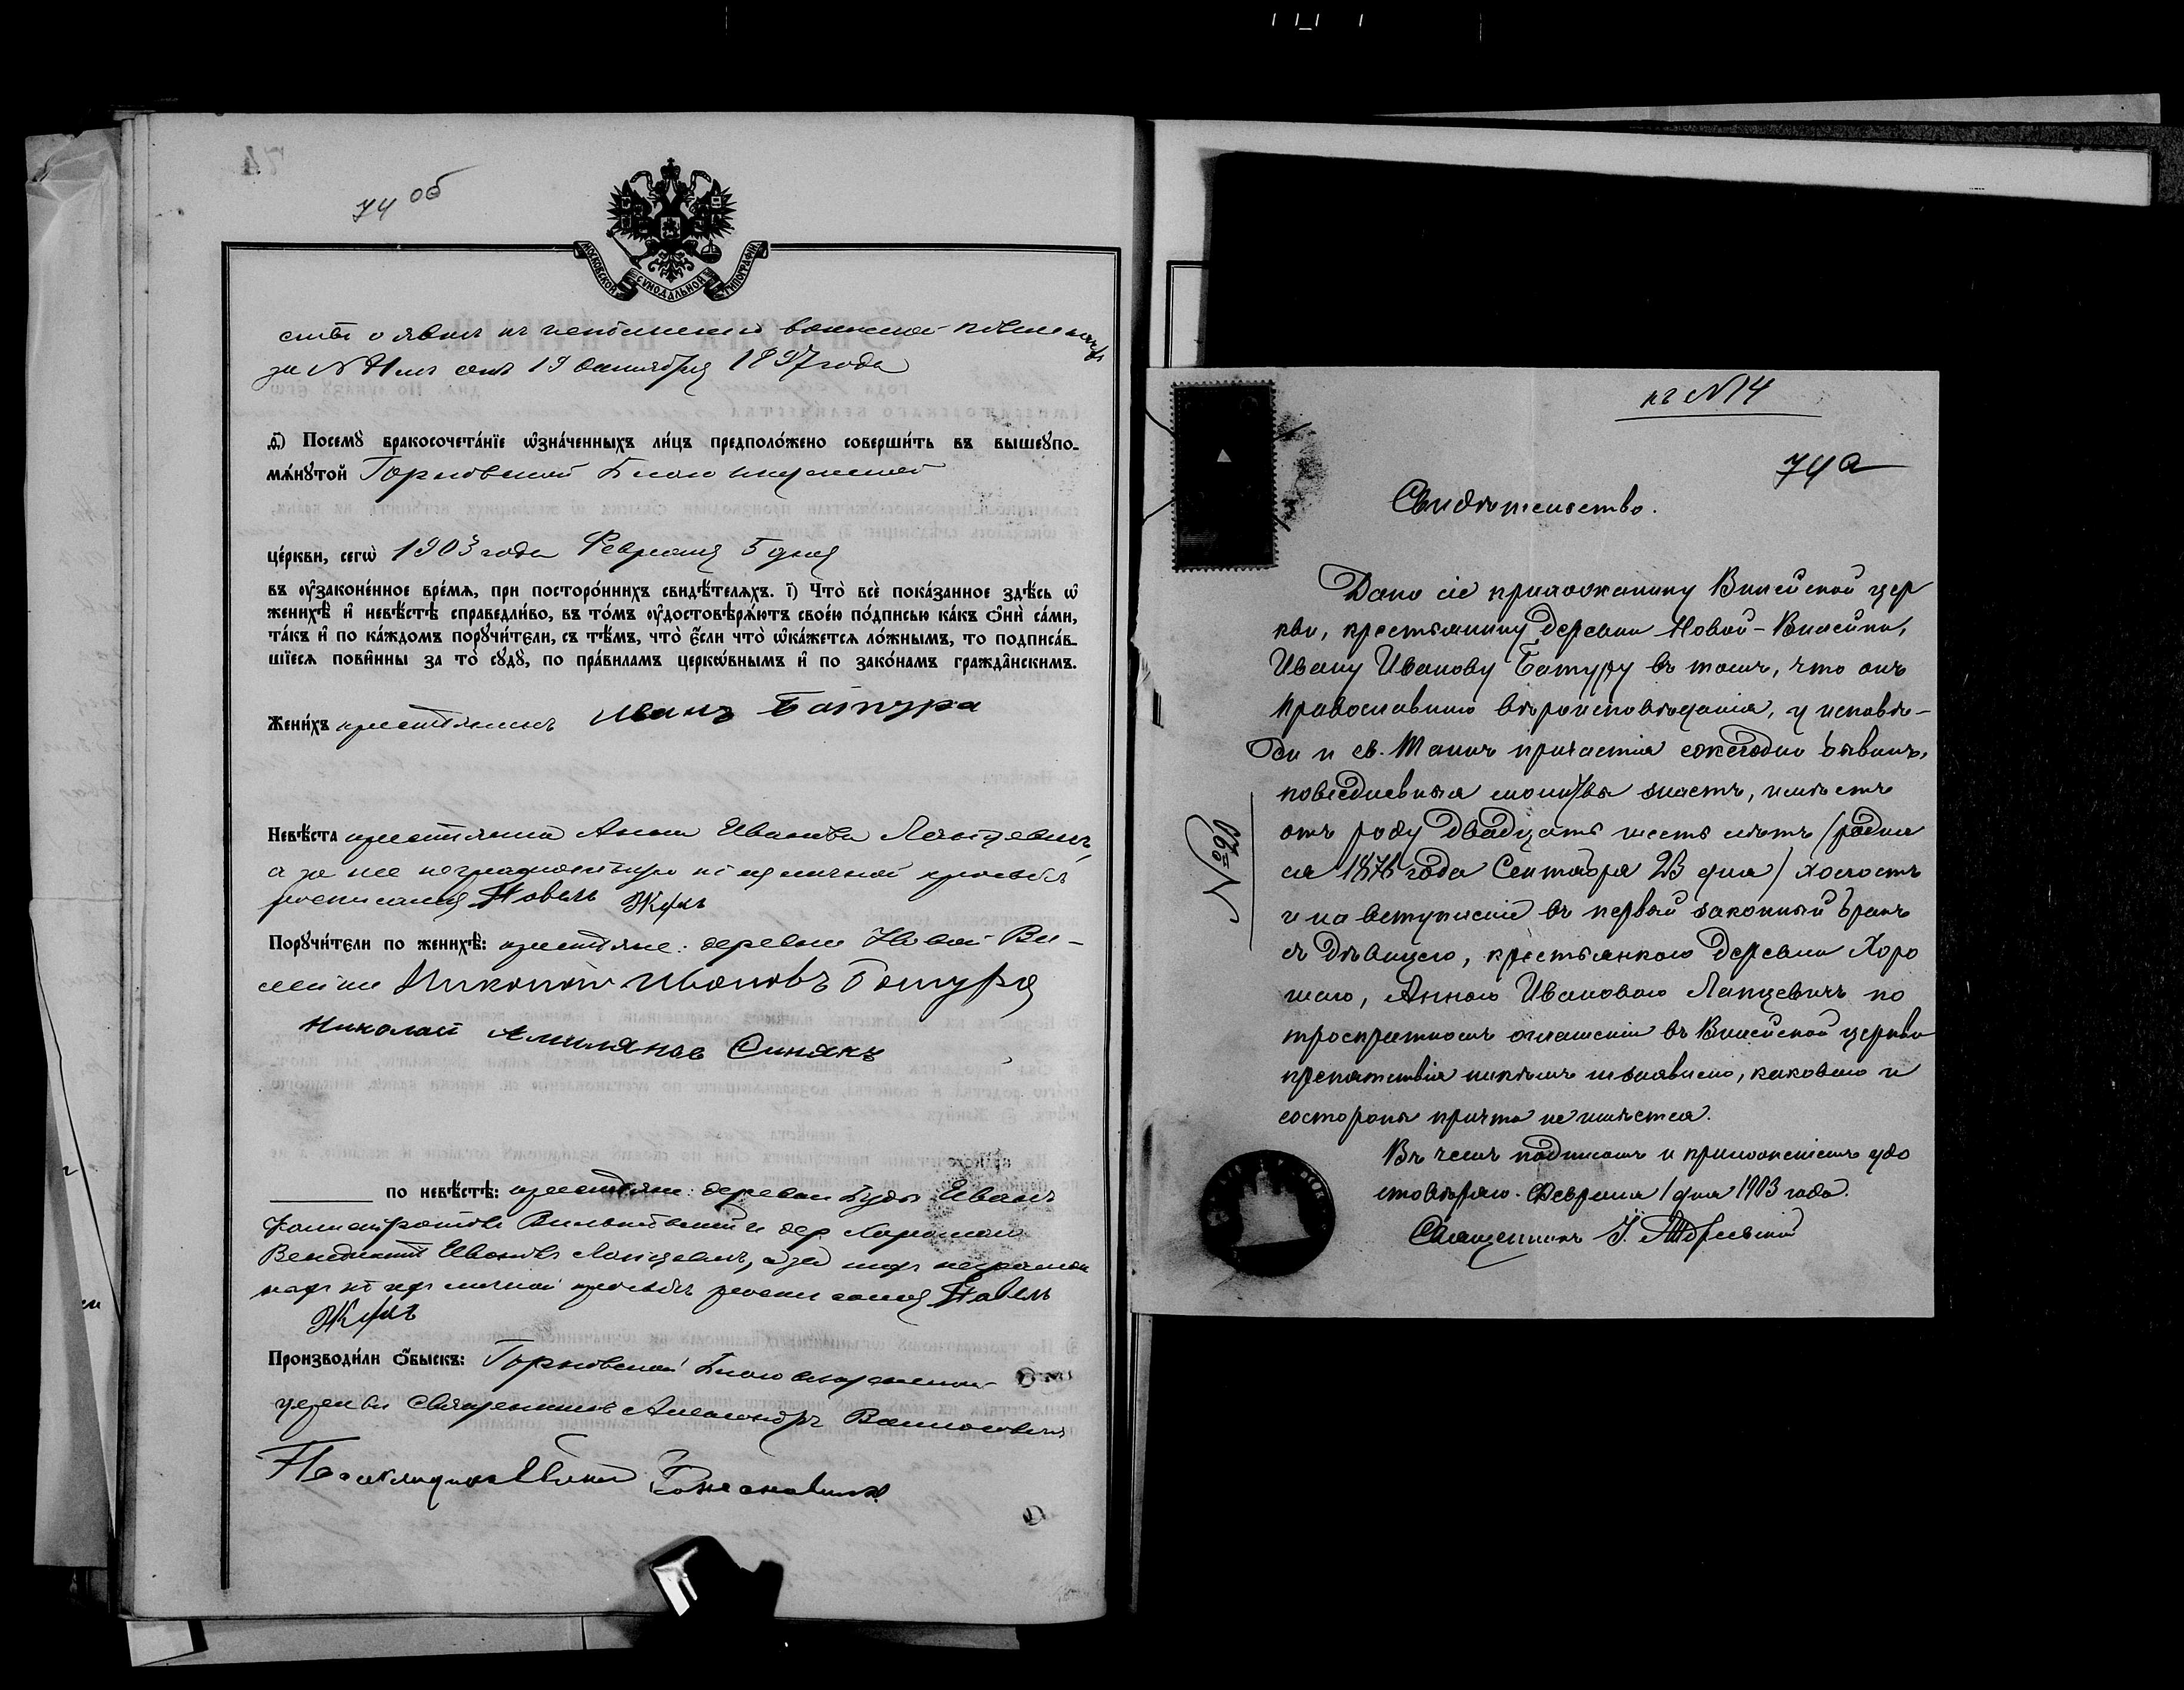 74 об
МОСКОВСКОЙ СѴНОДАЛЬНОЙ ТИПОГРАФІИ
за № сем 19 Октября 1897 года
д҃) Посемꙋ бракосочета́нїе ѡ҆зна́ченныхъ ли́цъ предполо́жено соверши́ть въ вышеꙋпо-
мѧ́нꙋтой Горновской Благовещенской
це́ркви, сегѡ̀ 1903 года Февраля 5 дня
въ ᲂу҆законе́нное вре́мѧ, при посторо́ннихъ свидѣ́телѧхъ. і҃) Что̀ всѐ пока́занное здѣ́сь ѡ҆
женихѣ̀ и҆ невѣ́стѣ справедли́во, въ то́мъ ᲂу҆достовѣрѧ́ютъ свое́ю по́дписью ка́къ ѻ҆нѝ са́ми,
та́къ и҆ по ка́ждомъ порꙋчи́тели, съ тѣ́мъ, что̀ є҆́сли что̀ ѡ҆ка́жетсѧ ло́жнымъ, то подписа́в-
шїесѧ пови́нны за то̀ сꙋдꙋ̀, по пра́виламъ церко́внымъ и҆ по зако́намъ гражда́нскимъ.
Жени́хъ крестьянинъ Иванъ Батура
Невѣ́ста крестьянка Анна Иванова Лапцевичъ,
а за нее неграмотную по ея личной просьбѣ
росписался Павелъ Жукъ
Порꙋчи́тели по женихѣ̀: крестьяне: деревни Новой Ви-
лейки Николай Ивановъ Батура
Николай Амиляновъ Синякъ
по невѣ́стѣ: крестьяне: деревни Буды Иванъ
и дер Хорошаго
Венедиктъ Ивановъ Лапцевичъ, а за нихъ неграмот
ныхъ по ихъ личной просьбѣ росписался Павелъ
Жукъ
Производи́ли ѻ҆́быскъ: Горновской Благовещенской
церкви Священникъ Александръ
Псаломщикъ
къ №14
74а
Свидѣтельство.
Дано сіе прихожанину Віейской цер
кви, крестьянину деревни Новой-Вилейки,
Ивану Иванову Батуру въ томъ, что онъ
православнаго вѣроисповѣданія, у исповѣ-
ди и св. Таинъ причастія ежегодно бывалъ,
повседневныя молитвы знаетъ, имѣетъ
отъ роду двадцать шесть лѣтъ (родил
ся 1876 года Сентября 23 дня) холостъ
и на вступленіе въ первый законный бракъ
съ дѣвицею, крестьянкою деревни Хоро
шаго, Анною Ивановою Лапцевичъ по
троекратномъ оглашеніи въ Віейской церкви
препятствія никѣмъ не заявлено, каковаго и
со стороны причта не имѣется.
Въ чемъ подписомъ и приложеніемъ удо
стовѣряю. Февраля 1 дня 1903 года.
Священникъ І.
№ 20